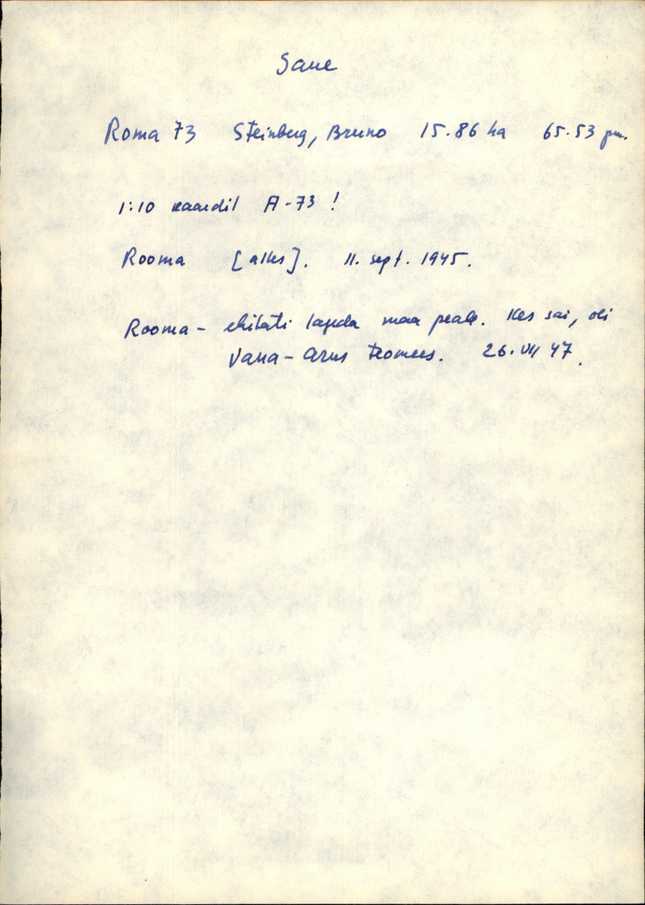 Saue
Roma 73 Steinberg, Bruno 15.86 ha 65.53 pm.
1:10 kaardil A-73 !
Rooma [alles]. 11. sept. 1945.
Rooma - ehitati lageda maa peale. Kes sai, oli
Vana-Arus teomees. 26.VII 47.